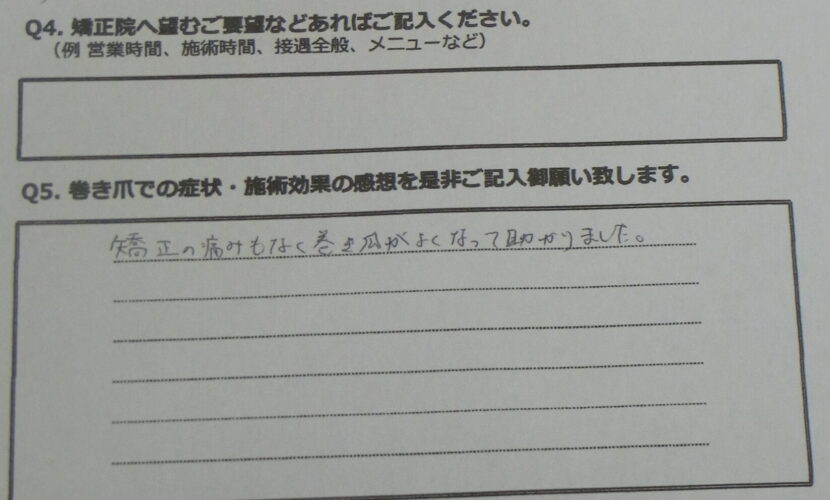 Q4. 矯正院へ望むご要望などあればご記入ください。
（例 営業時間、施術時間、接遇全般、メニューなど）
Q5. 巻き爪での症状・施術効果の感想を是非ご記入御願い致します。
矯正の痛みもなく巻き爪がよくなって助かりました。